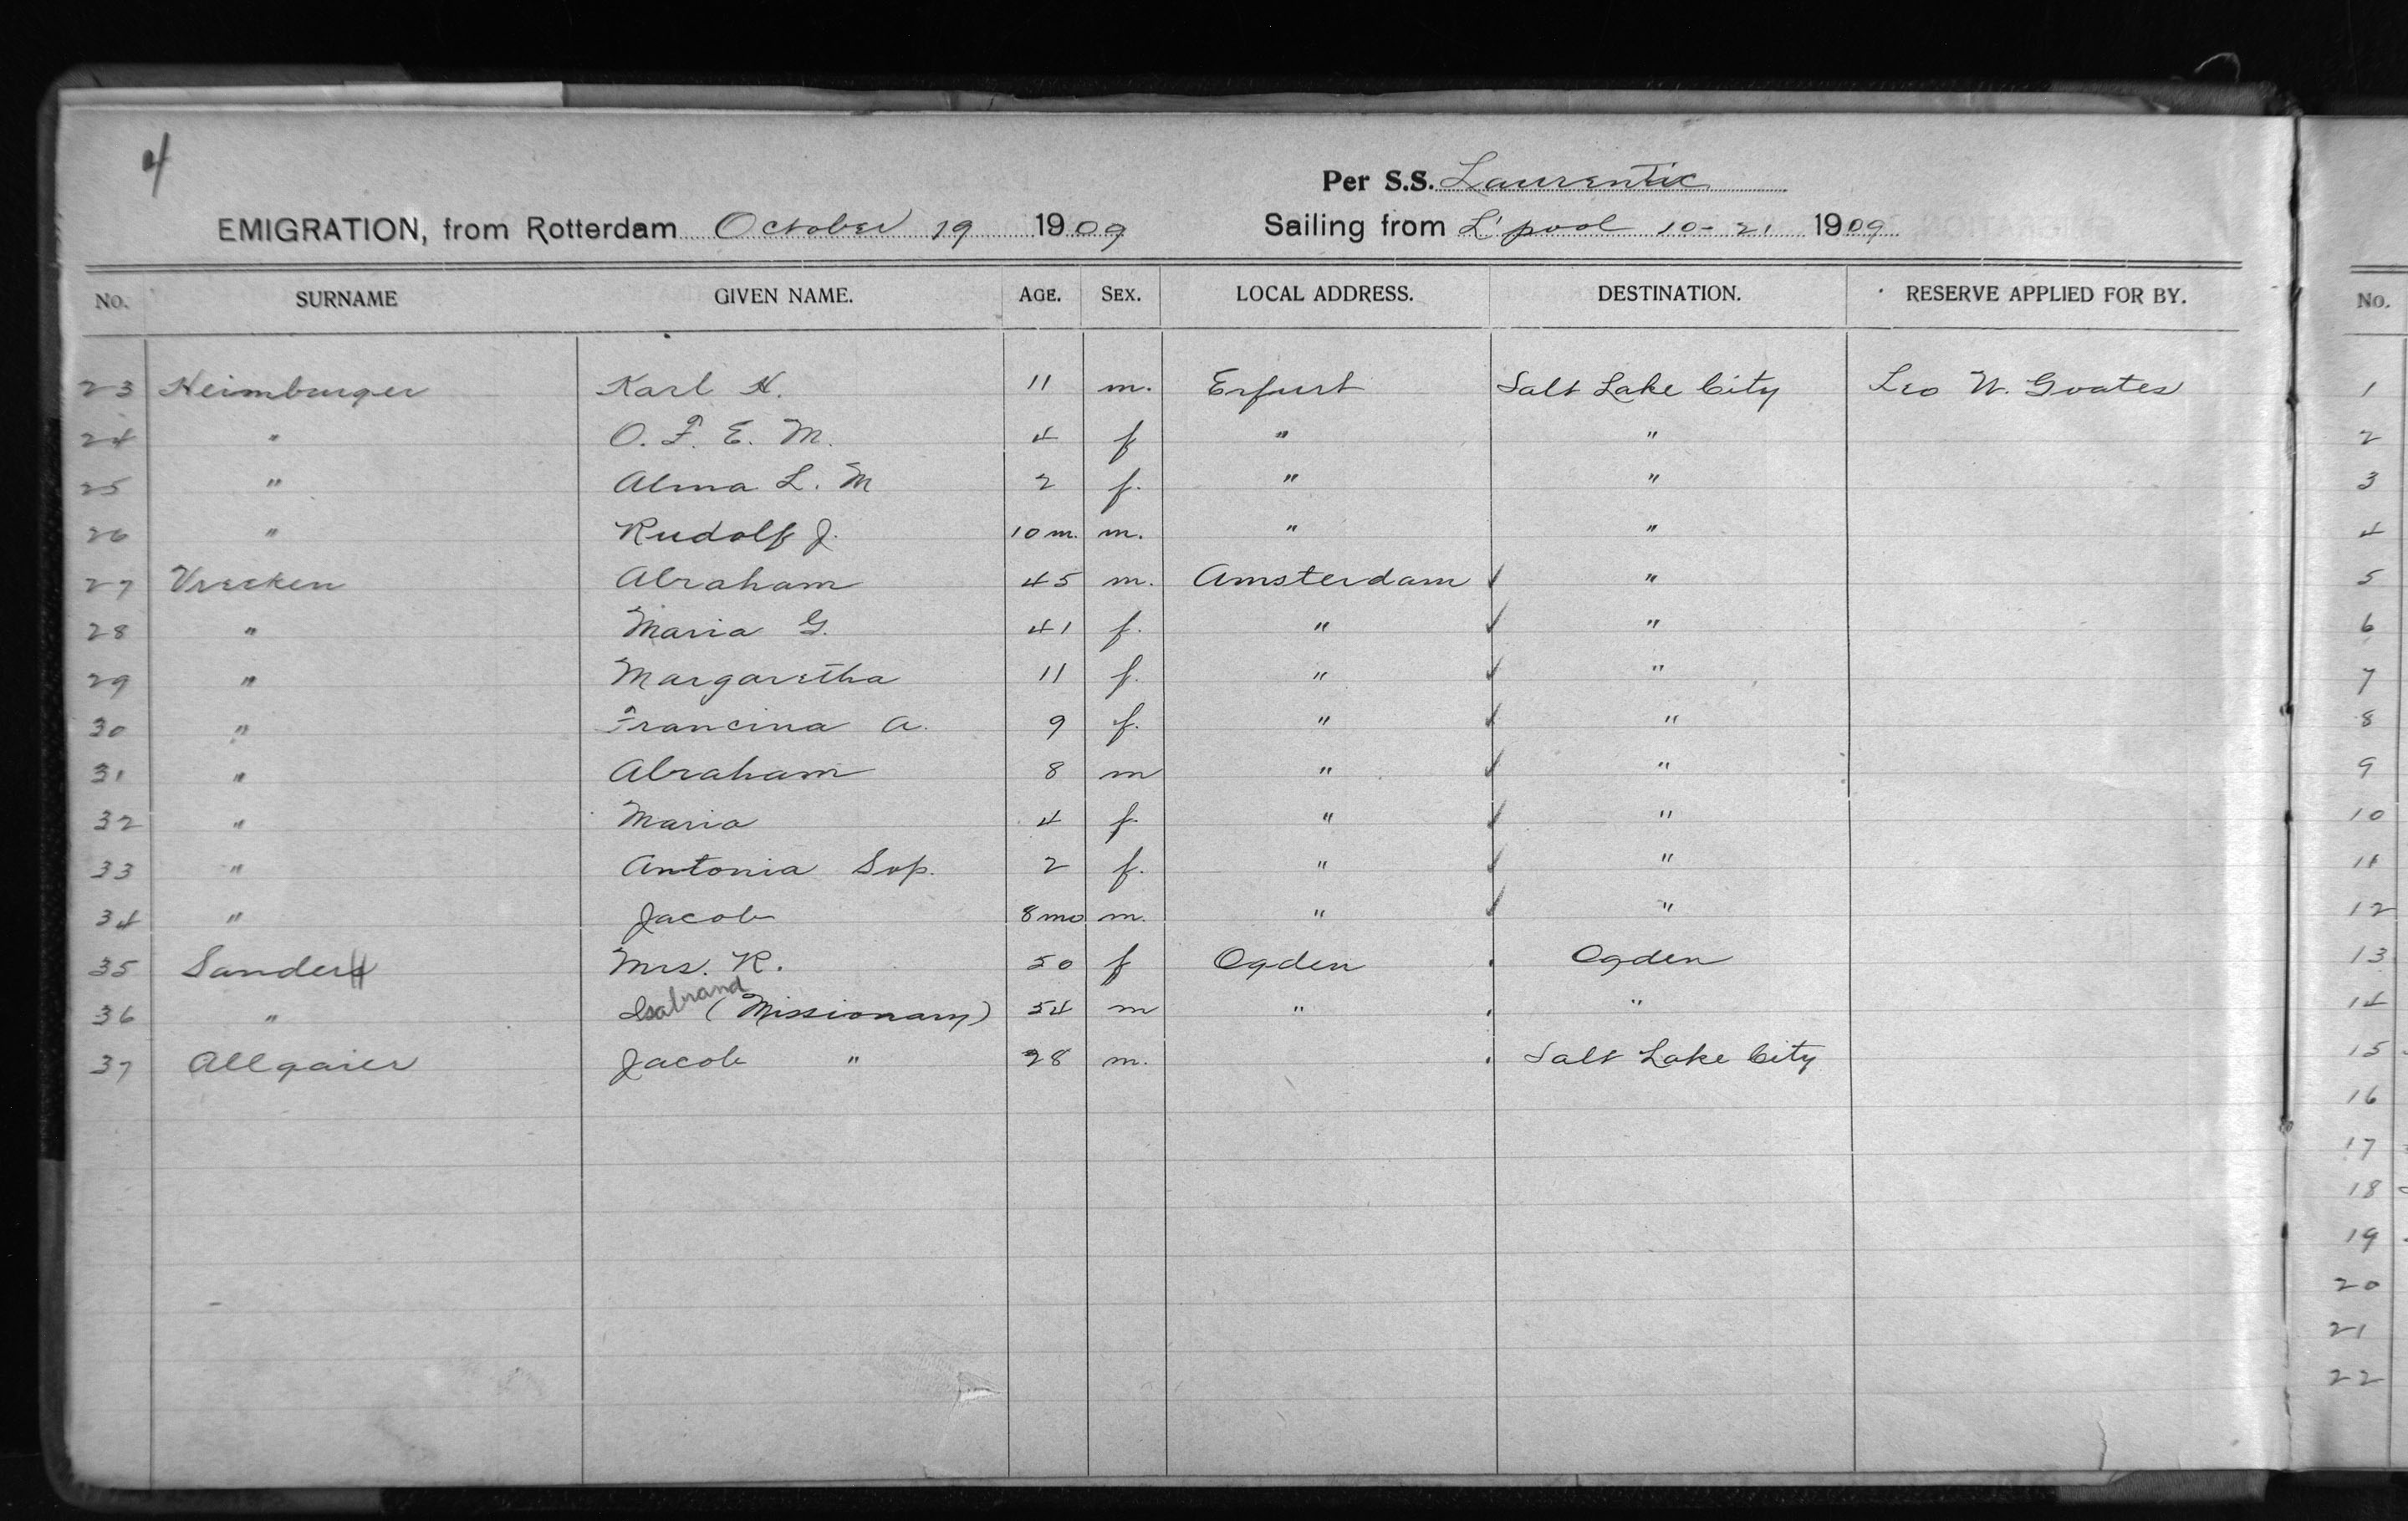 4
Per S.S. Laurentic
EMIGRATION, from Rotterdam October 19 1909 Sailing from L'pool 10-21 1909
No. SURNAME GIVEN NAME. AGE. SEX. LOCAL ADDRESS. DESTINATION. RESERVE APPLIED FOR BY. No.
23 Heimburger Karl H. 11 m. Erfurt Salt Lake City Leo W. Goates 1
24 " O. F. E. M. 4 f " " 2
25 " Alma L. M 2 f. " " 3
26 " Rudolf J. 10 m. m. " " 4
27 Vreeken Abraham 45 m. Amsterdam ✓ " 5
28 " Maria G. 41 f. " ✓ " 6
29 " Margaretha 11 f. " ✓ " 7
30 " Francina A. 9 f. " ✓ " 8
31 " Abraham 8 m " ✓ " 9
32 " Maria 4 f. " ✓ " 10
33 " Antonia Sop. 2 f. " ✓ " 11
34 " Jacob 8 mo m. " ✓ " 12
35 Sanders Mrs. R. 50 f Ogden Ogden 13
36 " Isabrand (Missionary) 54 m " " 14
37 Allgaier Jacob " 28 m. Salt Lake City 15
16
17
18
19
20
21
22